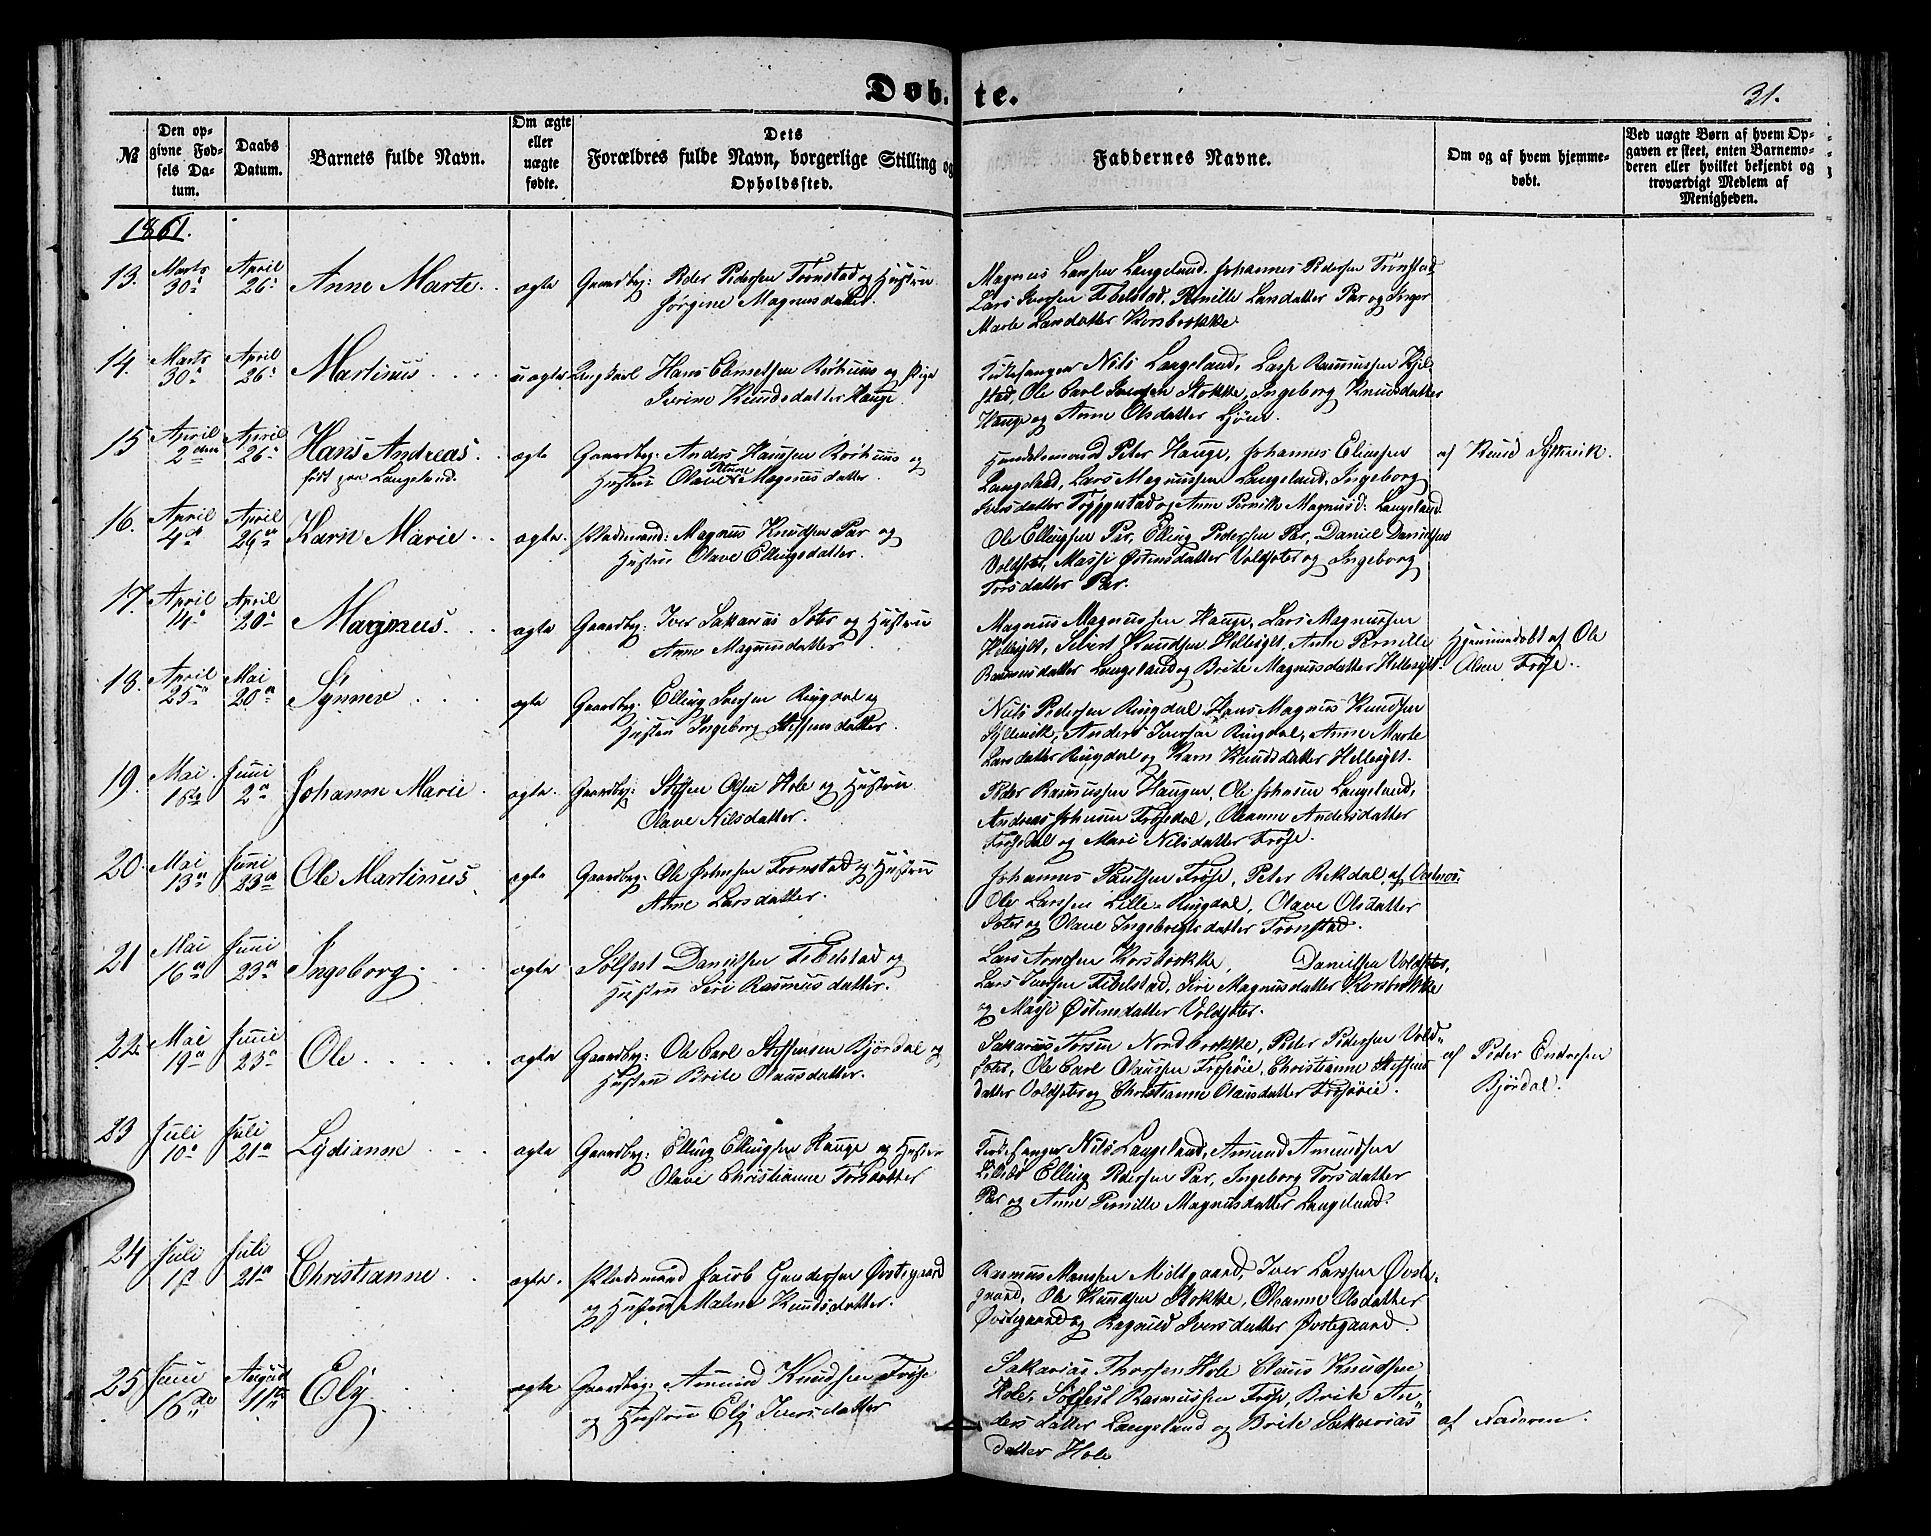 Døbte.
31.
№
Den opgivne Fødsels Datum.
Daabs Datum.
Barnets fulde Navn.
Om ægte eller uægte fødte.
Dets Forældres fulde Navn, borgerlige Stilling og Opholdssted.
Faddernes Navne.
Om og af hvem hjemmedøbt.
Ved uægte Børn af hvem Opgaven er skeet, enten Barnemoderen eller hvilket bekjendt og troværdigt Medlem af Menigheden.
1861.
13. Marts 30. April 26. Anne Marte. ægte Gaardbrg: Peder Pedersen Tronstad og Hustru
Jørgine Magnusdatter.
Magnus Larssen Langeland, Johannes Pedersen Tronstad
Lars Iverssen Fibelstad, Pernille Larsdatter Par og Inger
Marte Larsdatter Korsbrekke.
14. Marts 30. April 26. Martinus uægte Ungkarl Hans Rørhuus og Pige
Iverine Knudsdatter Hauge.
Kirkesanger Nils Langeland, Rasmussen
Ole Carl Iversen Stokke, Ingeborg Knudsdatter
Hauge og Anne Olsdatter
15 April 2den April 26. Hans Andreas. ægte Gaardbrg: Anders Hanssen Rørhuus og
født paa Langeland.
Hustru Olave Magnusdatter.
Handelsmand Peter Hauge, Johannes
Langeland, Lars Magnussen Langeland, Ingeborg
Iversdatter og Anne Pernille Magnusd: Langeland
af Knud
16. April 4de April 26 Karn Marie ægte. Pladsmand: Magnus Knudsen Par og
Hustru Olave Ellingsdatter.
Ole Ellingsen Par, Elling Pedersen Par, Daniel Danielsen
Voldsæter, Massi Østensdatter Voldsæter og Ingeborg
Torsdatter Par.
17. April 14. April 20. Magnus. ægte Gaardbrg: Iver Sakarias Sæter og Hustru
Anne Magnusdatter
Magnus Magnussen Hauge, Lars Magnussen
Hellesylt, Sivert Hellesylt, Anne Pernille
Rasmusdatter Langeland og Brite Magnusdatter Hellesylt.
Hjemmedøbt af Ole
Olsen Frøse.
18. April 25 Mai 20 Synnev ægte Gaardbrg. Elling Iversen Ringdal og
Hustru Ingeborg Steffensdatter.
Nils Pedersen Ringdal, Hans Magnus Knudsen
Anders Iversen Ringdal, Anne Marte
Larsdatter Ringdal og Karn Knudsdatter Hellesylt.
19. Mai Juni 2 Johanne Marie ægte. Gaardbrg: Steffen Olsen Hole og Hustru
Olave Nilsdatter.
Peder Rasmussen Haugen, Ole Johnsen Langeland,
Andreas Johnsen Frøsedal, Oleanne Andersdatter
Frøsdal og Mari Nilsdatter Frøse.
20. Mai 13 Juni 23 Ole Martinus. ægte Gaardbrg: Ole Johnsen Tronstad og Hustru
Anne Larsdatter.
Johannes Paulsen Frøse, Peter Rekdal af
Ole Larssen Lille-Ringdal, Olave Olsdatter
Sæter og Olave Ingebrigtsdatter Tronstad.
21 Mai 16 Juni 23 Ingeborg. ægte Sølfest Danielsen Fibelstad og
Hustru Siri Rasmusdatter.
Lars Arnesen Korsbrekke, Danielsen Voldsæter,
Lars Iversen Fibelstad, Siri Magnusdatter Korsbrekke
og Massi Østensdatter Voldsæter.
22. Mai 19 Juni 23 Ole ægte Gaardbrg: Ole Carl Steffensen Bjørdal og
Hustru Brite Olausdatter.
Sakarias Torsen Nordbrekke, Peder Pedersen Voldsæter,
Ole Carl Olaussen Frøsøie, Christianne Steffensdatter
Voldsæter og Christianne Olausdatter Frøsøie.
af Peder Endresen
Bjørdal.
23 Juli 10 Juli 21 Lydianne ægte Gaardbrg: Elling Ellingsen Hauge og Hustru
Olave Christianne Torsdatter
Kirkesanger Nils Langeland, Amund Amundsen
Elling Pedersen Par, Ingeborg Torsdatter
Par og Anne Pernille Magnusdatter Langeland.
24 Juli Juli 21 Christianne ægte. Pladsmand Jacob Gundersen Øvstegaard
og Hustru Malene Knudsdatter.
Rasmus Hanssen Midtgaard, Iver Larssen Øvstegaard,
Ole Knudsen Stokke, Oleanne Olsdatter
Øvstegaard og Ragnild Iversdatter Øvstegaard.
25 Juni 16de August 11te Ely ægte Gaardbrg: Amund Knudsen Frøse
og Hustru Ely Iversdatter
Sakarias Thorsen Hole Claus Knudsen
Hole, Sølfest Rasmussen Frøse, Brite Andersdatter
Langeland og Brite Sakariasdatter
Hole
af Faderen.